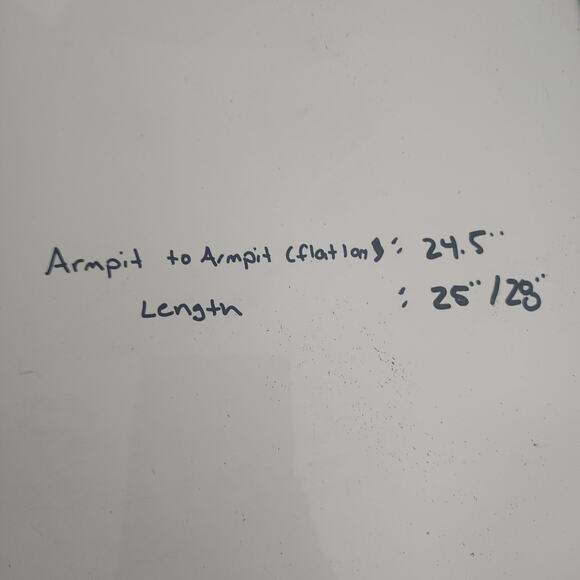 Armpit to Armpit (flat : 24.5"
Length : 25" / 28"